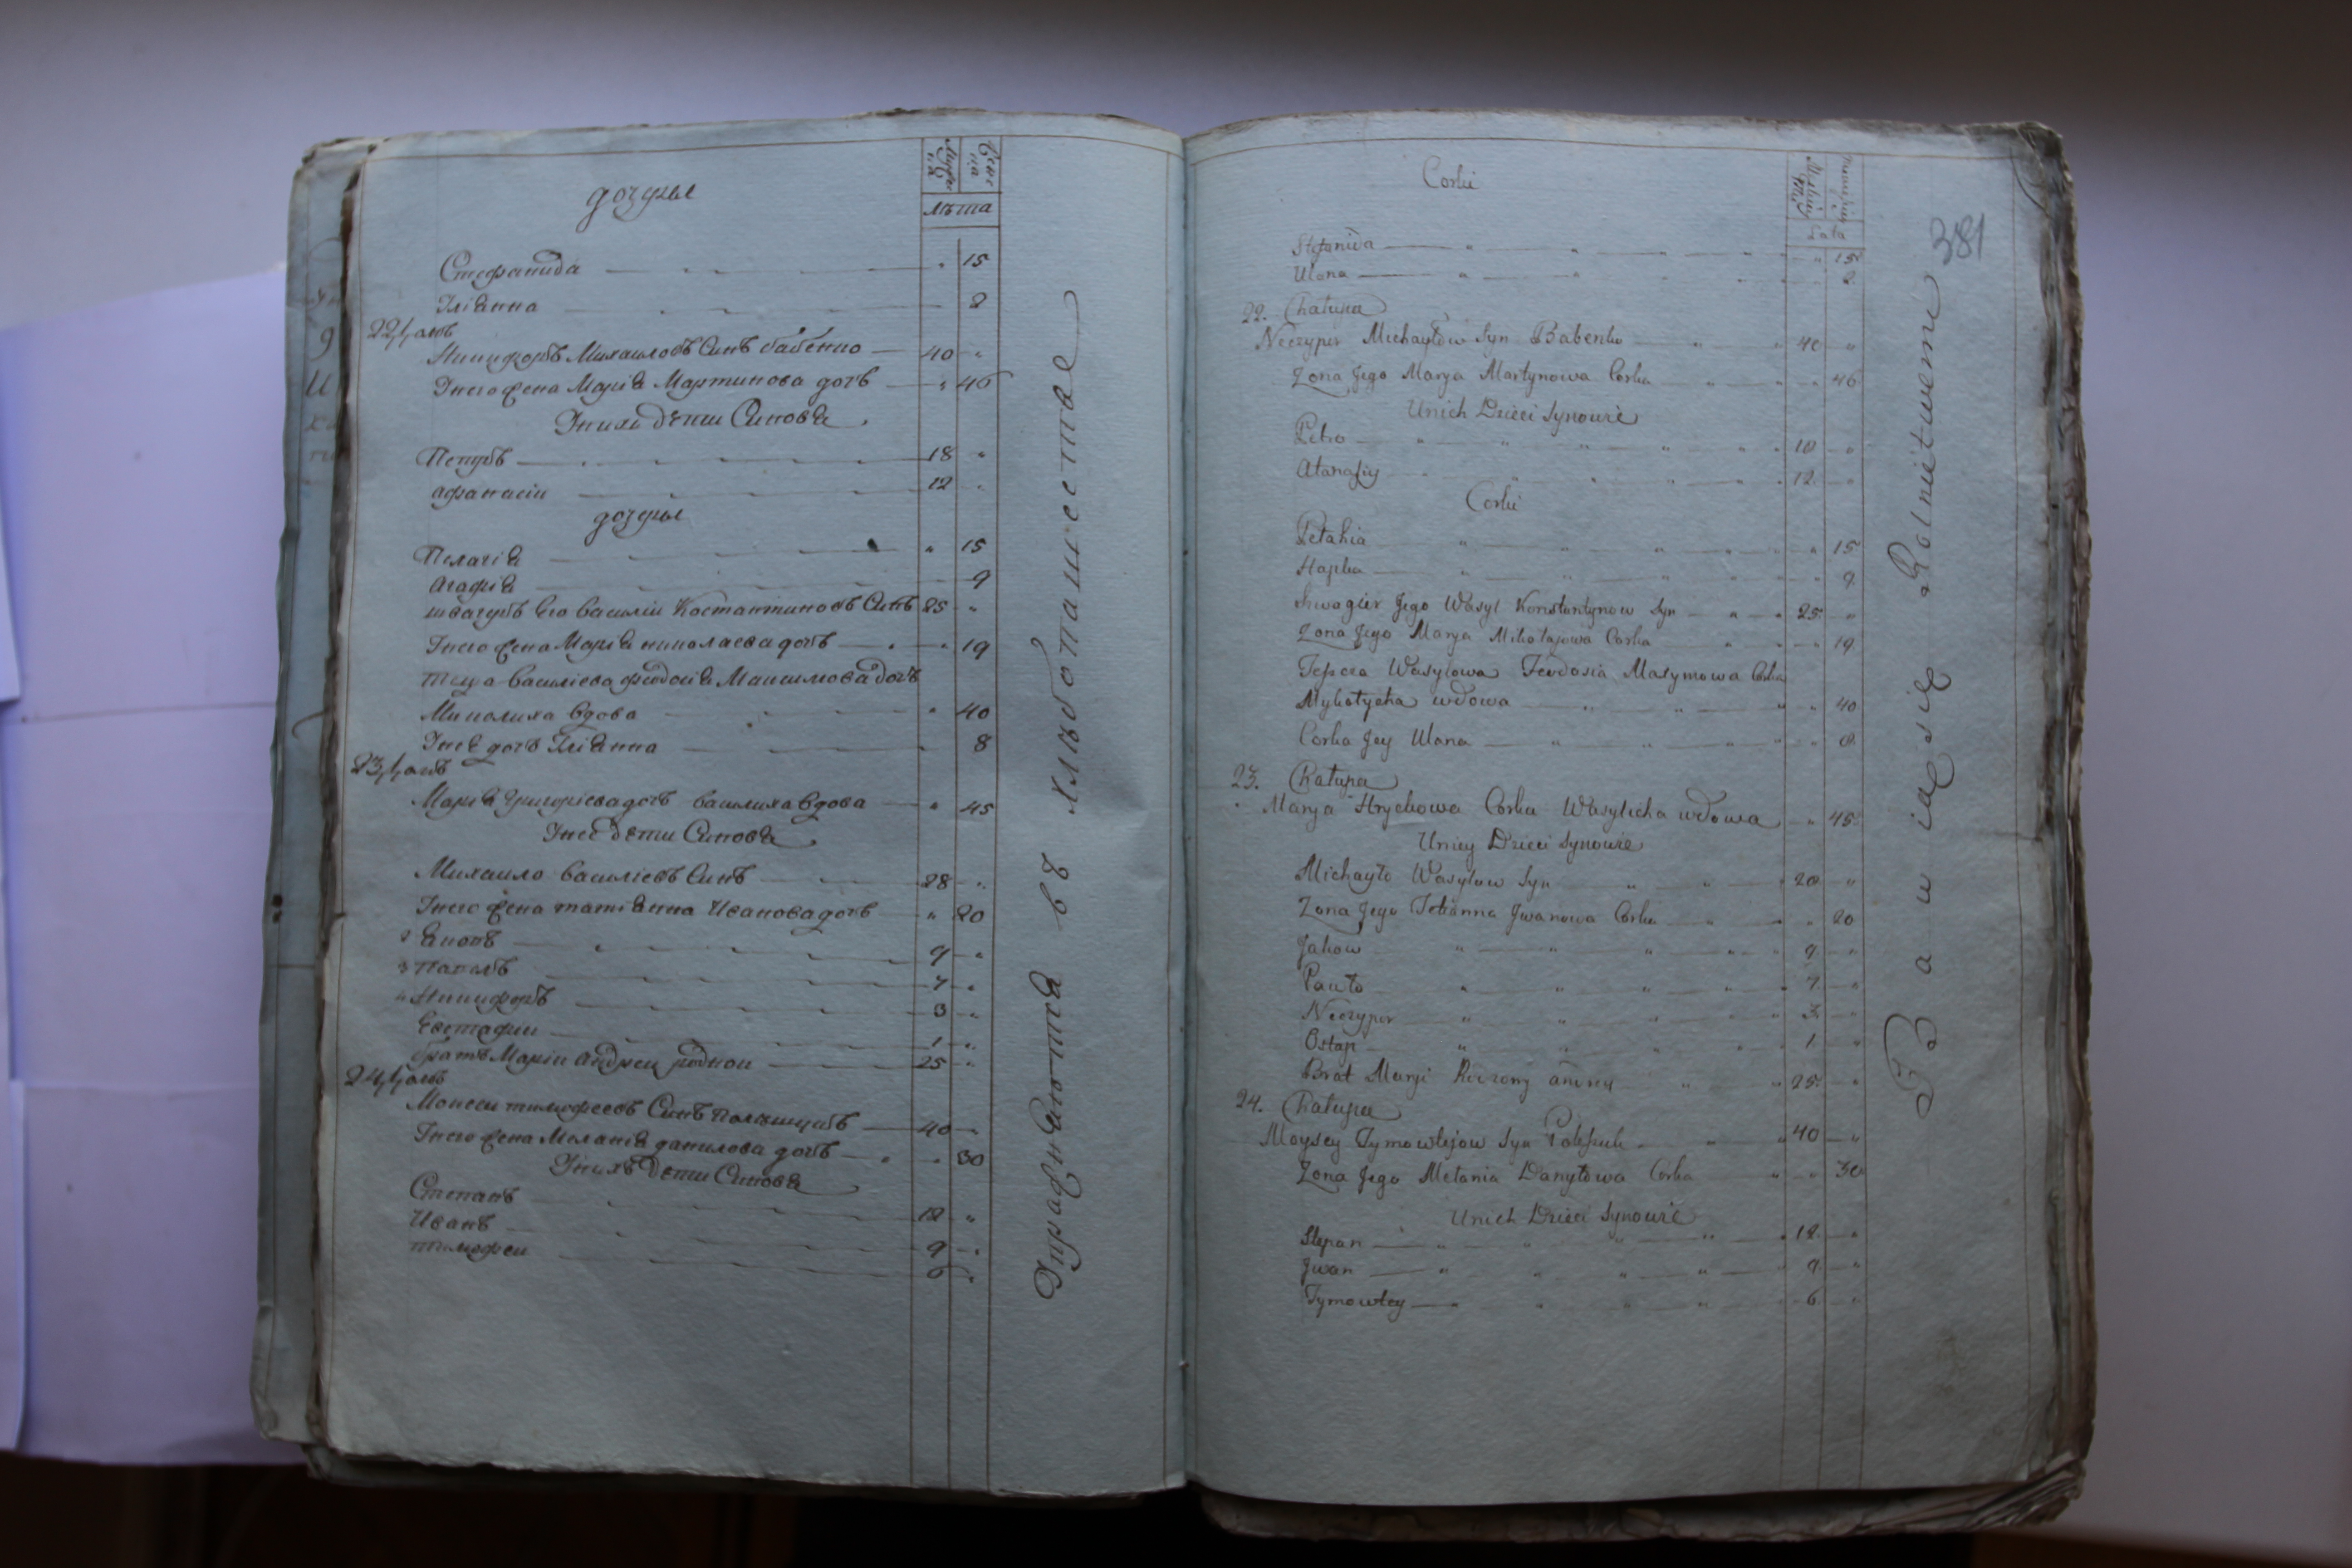 дочеры
Мужеска
Женска
лѣта
Стефанида 15
Улiянна 2
22, хатъ
Никифоръ Михаиловъ Синъ бабенко 40
Унего жена Марiя Мартинова дочь 46
Унихъ дети Синовя
Петръ 18
афанасiи 12
дочеры
Пелагiя 15
Агафiя 9
швагеръ Его Василiи Костантиновъ Синъ 25
Унего жена Марiя николаева дочь 19
теща василiева феодосiя Максимова дочь
Миколиха вдова 40
Унея дочь Улiянна 8
23, хатъ
Марiя Григорiева дочь василиха вдова 45
Унеe дети Синовя
Михаило василiевъ Синъ 28
Унего жена татiянна Иванова дочь 20
2 Яковъ 9
3 Павелъ 7
4 Никифоръ 3
Евстафiи 1
братъ Марiи Андреи родной 25
24, хатъ
Моисеи тимофеевъ Синъ полищукъ 40
Унего жена Меланiя данилова дочь 30
Унихъ дети Синовя
Степанъ 12
Иванъ 9
тимофеи 6
Упражняются въ хлѣбопашестве
381
Corki
Lata
Stefanida 15
Ulana 2
22. Chałupa
Neczypor Michayłów Syn Babenko 40
Zona Jego Marya Martynowa Corka 46
Unich Dzieci Synowie
Petro 18
Atanasiy 12
Corki
Pełahia 15
Hapka 9
Szwagier Jego Wasyl Konstantynow Syn 25
Zona Jego Marya Mikołajowa Corka 19
Teszcza Wasylowa Feodosia Maxymowa Corka
Mykołycha wdowa 40
Corka Jey Ulana 8
23. Chałupa
Marya Hryckowa Corka Wasylicha wdowa 45
Uniey Dzieci Synowie
Michayło Wasylow Syn 28
Zona Jego Tetianna Jwanowa Corka 20
Jakow 9
Pawło 7
Neczypor 3
Ostap 1
Brat Maryi Rodzony andrey 25
24. Chałupa
Moysey Tymowtejow Syn Poleszuk 40
Zona Jego Mełania Danyłowa Corka 30
Unich Dzieci Synowie
Stepan 12
Jwan 9
Tymowtey 6
Bawią się Rolnictwem